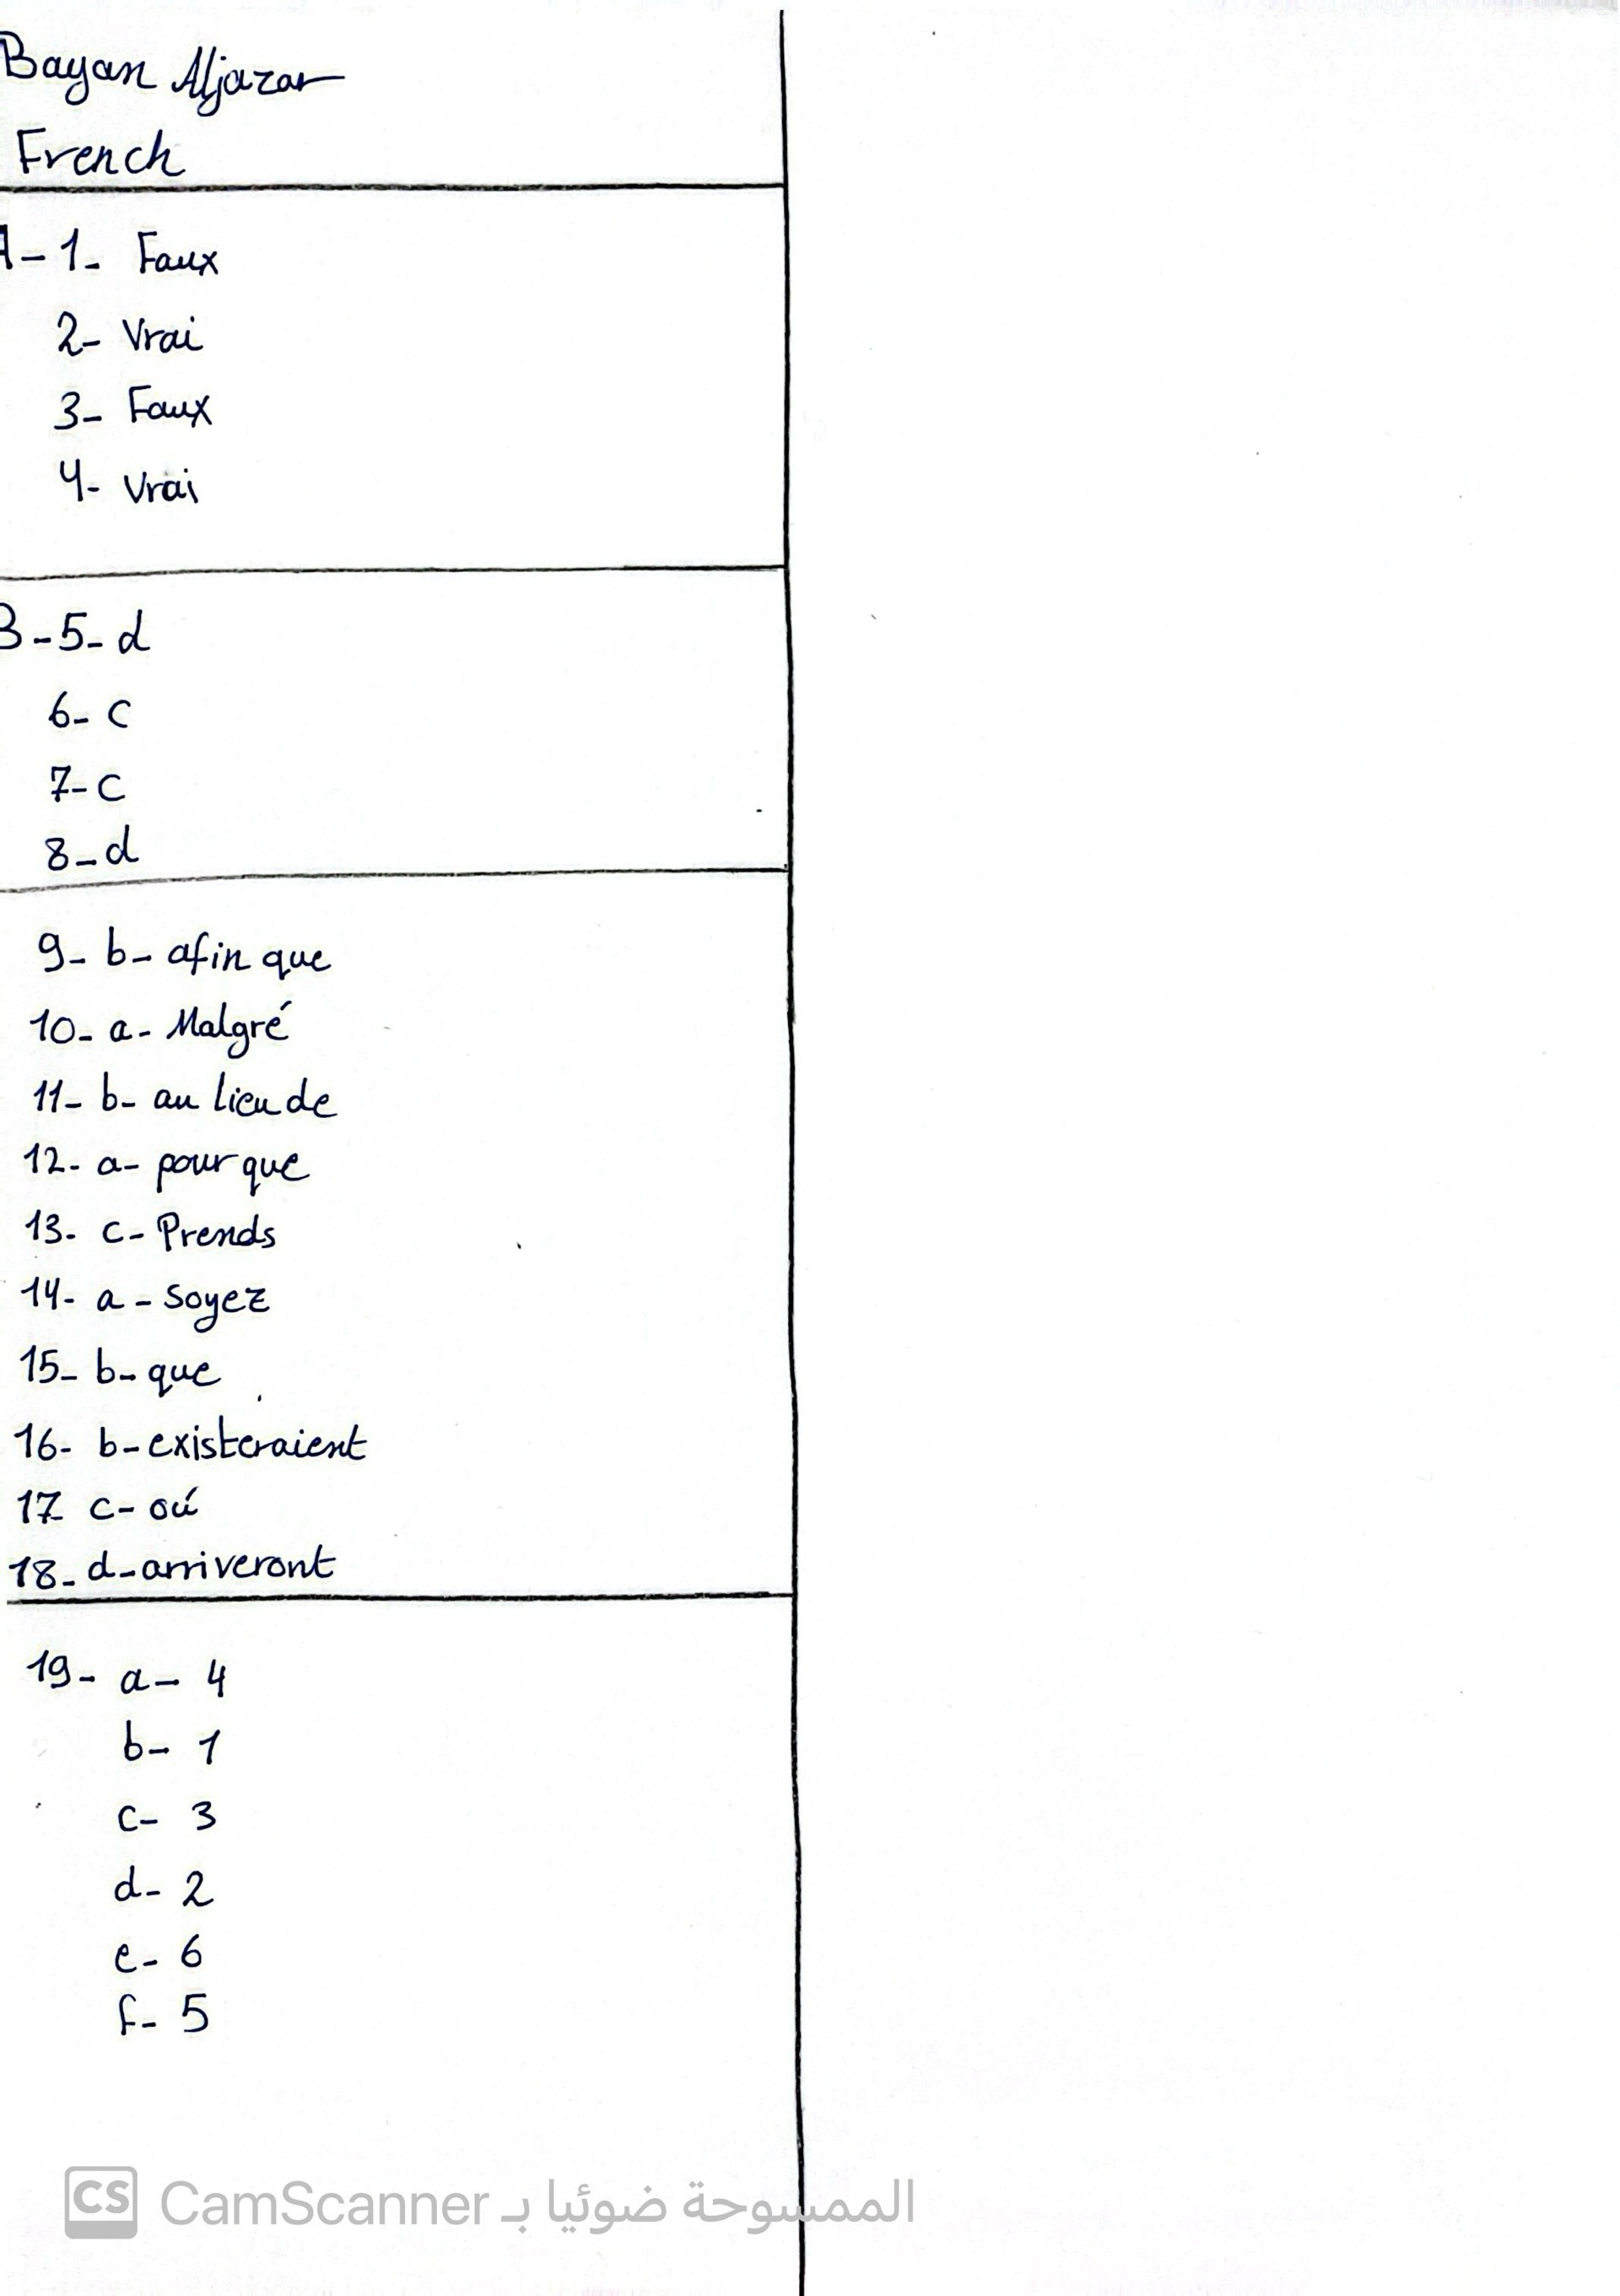 Bayan Aljazar
French
A- 1- Faux
2- Vrai
3- Faux
4- Vrai
B-5-d
6- c
7-c
8-d
9- b- afin que
10- a- Malgré
11- b- au lieu de
12- a- pour que
13- c- Prends
14- a- soyez
15- b- que
16- b-existeraient
17 c- oú
18- d-arriveront
19- a- 4
b- 1
c- 3
d- 2
e- 6
f- 5
CS CamScanner الممسوحة ضوئيا بـ